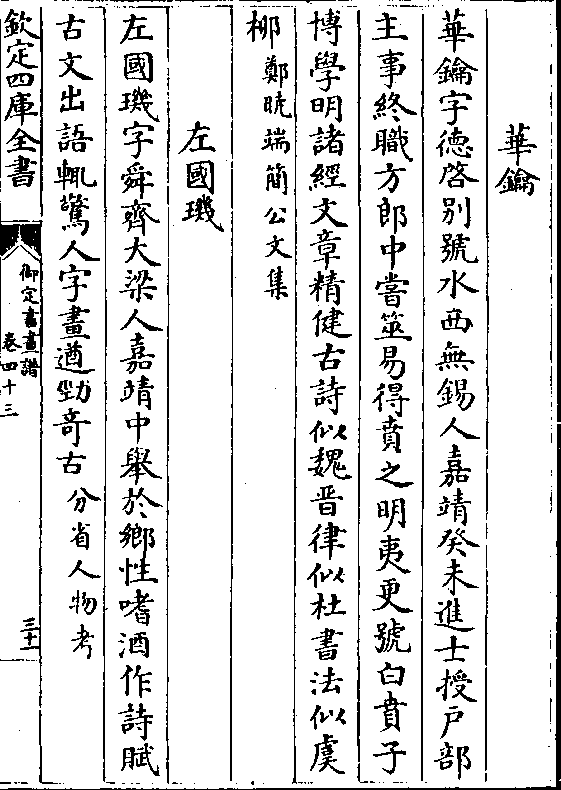 華鑰
華鑰字德啓别號水西無錫人嘉靖癸未進士授户部
主事終職方郎中嘗筮易得賁之明夷更號白賁子
博學明諸經文章精健古詩似魏晋律似杜書法似虞
柳鄭曉端簡公文集
左國璣
左國璣字舜齊大梁人嘉靖中舉於鄉性嗜酒作詩賦
古文出語輒驚人字畫遒勁竒古分省人物考
欽定四庫全書
御定書畫譜
卷四十三
三十一